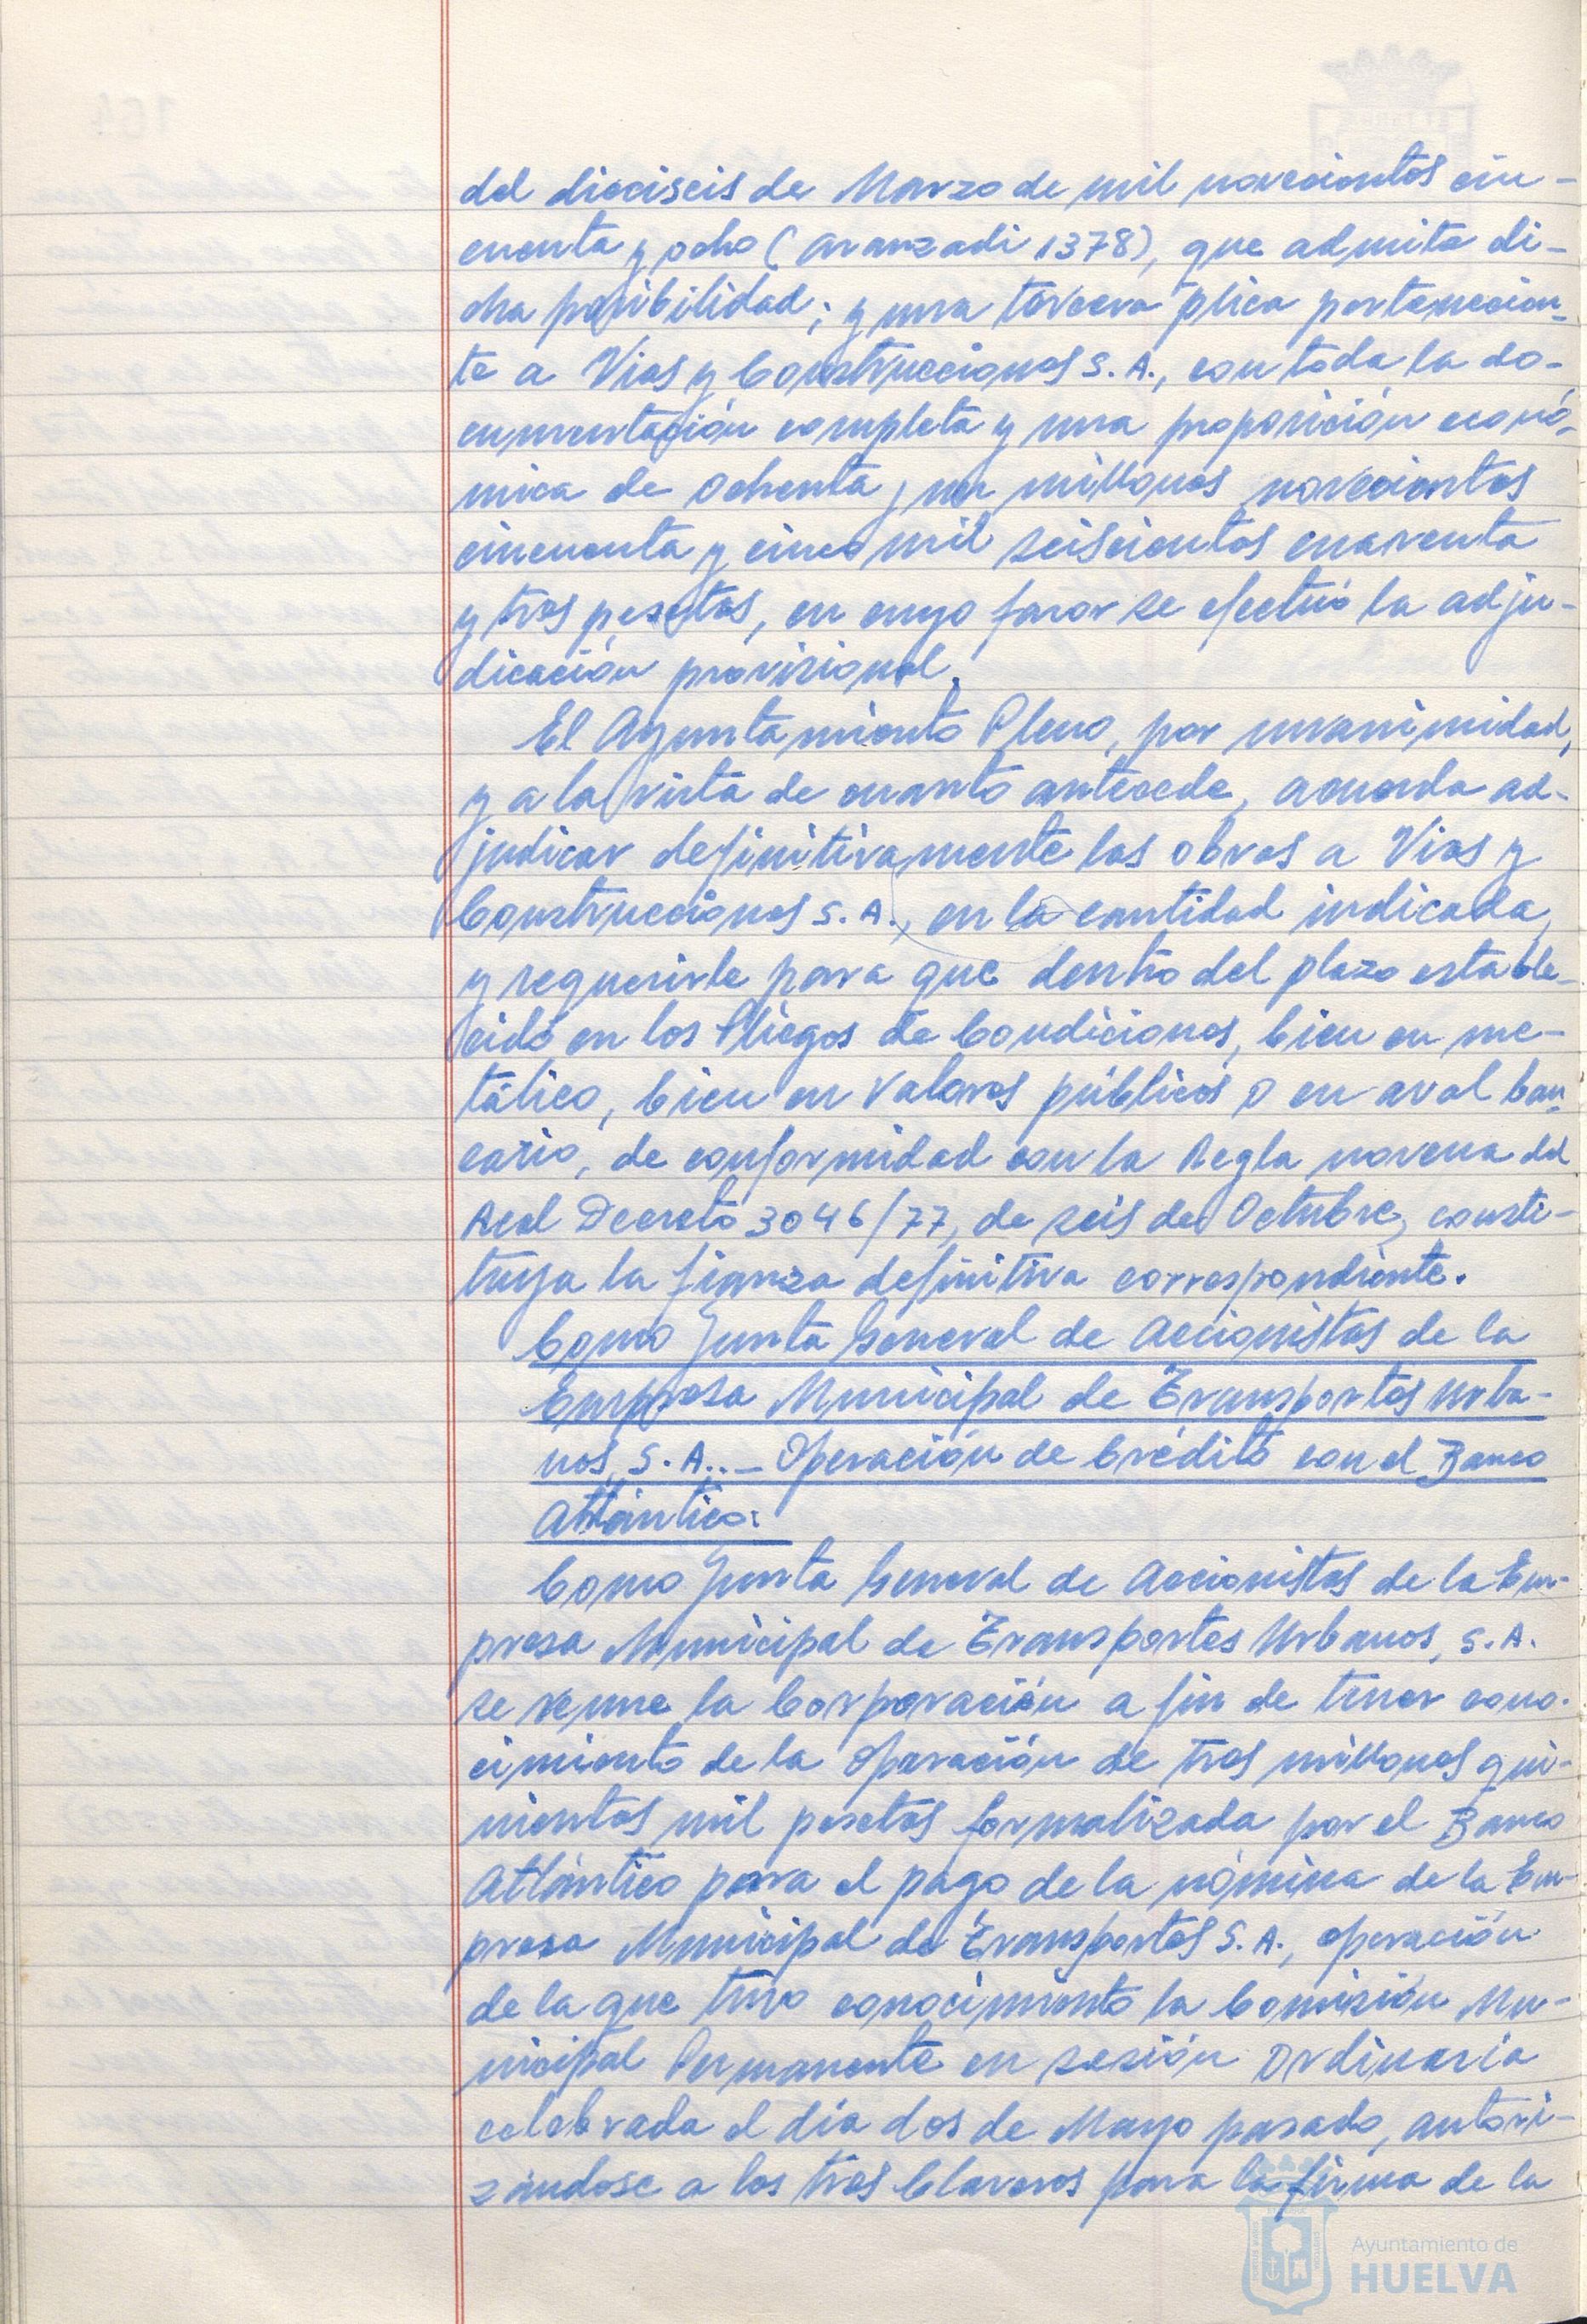 del dieciseis de Marzo de mil novecientos cin-
cuenta y ocho (Aranzadi 1378), que admite di-
cha posibilidad; y una tercera plica pertenecien-
te a Vias y Construcciones S.A., con toda la do-
cumentación completa y una proposición econó-
mica de ochenta y un millones novecientos
cincuenta y cinco mil seiscientos cuarenta
y tres pesetas, en cuyo favor se efectuó la adju-
dicación provisional.
El Ayuntamiento Pleno, por unanimidad,
y a la vista de cuanto antecede, acuerda ad-
judicar definitivamente las obras a Vias y
Construcciones S.A., en la cantidad indicada,
y requerirle para que dentro del plazo estable-
cido en los Pliegos de Condiciones, bien en me-
tálico, bien en valores públicos o en aval ban-
cario, de conformidad con la Regla novena del
Real Decreto 3046/77, de seis de Octubre, consti-
tuya la fianza definitiva correspondiente.
Como Junta General de Accionistas de la
Empresa Municipal de Transportes Urba-
nos, S.A..- Operación de Crédito con el Banco
Atlántico:
Como Junta General de Accionistas de la Em-
presa Municipal de Transportes Urbanos, S.A.
se reune la Corporación a fin de tener cono-
cimiento de la operación de tres millones qui-
nientas mil pesetas formalizada por el Banco
Atlántico para el pago de la nómina de la Em-
presa Municipal de Transportes S.A., operación
de la que tuvo conocimiento la Comisión Mu-
nicipal Permanente en sesión ordinaria
celebrada el día dos de Mayo pasado, autori-
zándose a los tres Claveros para la firma de la
Ayuntamiento de
HUELVA